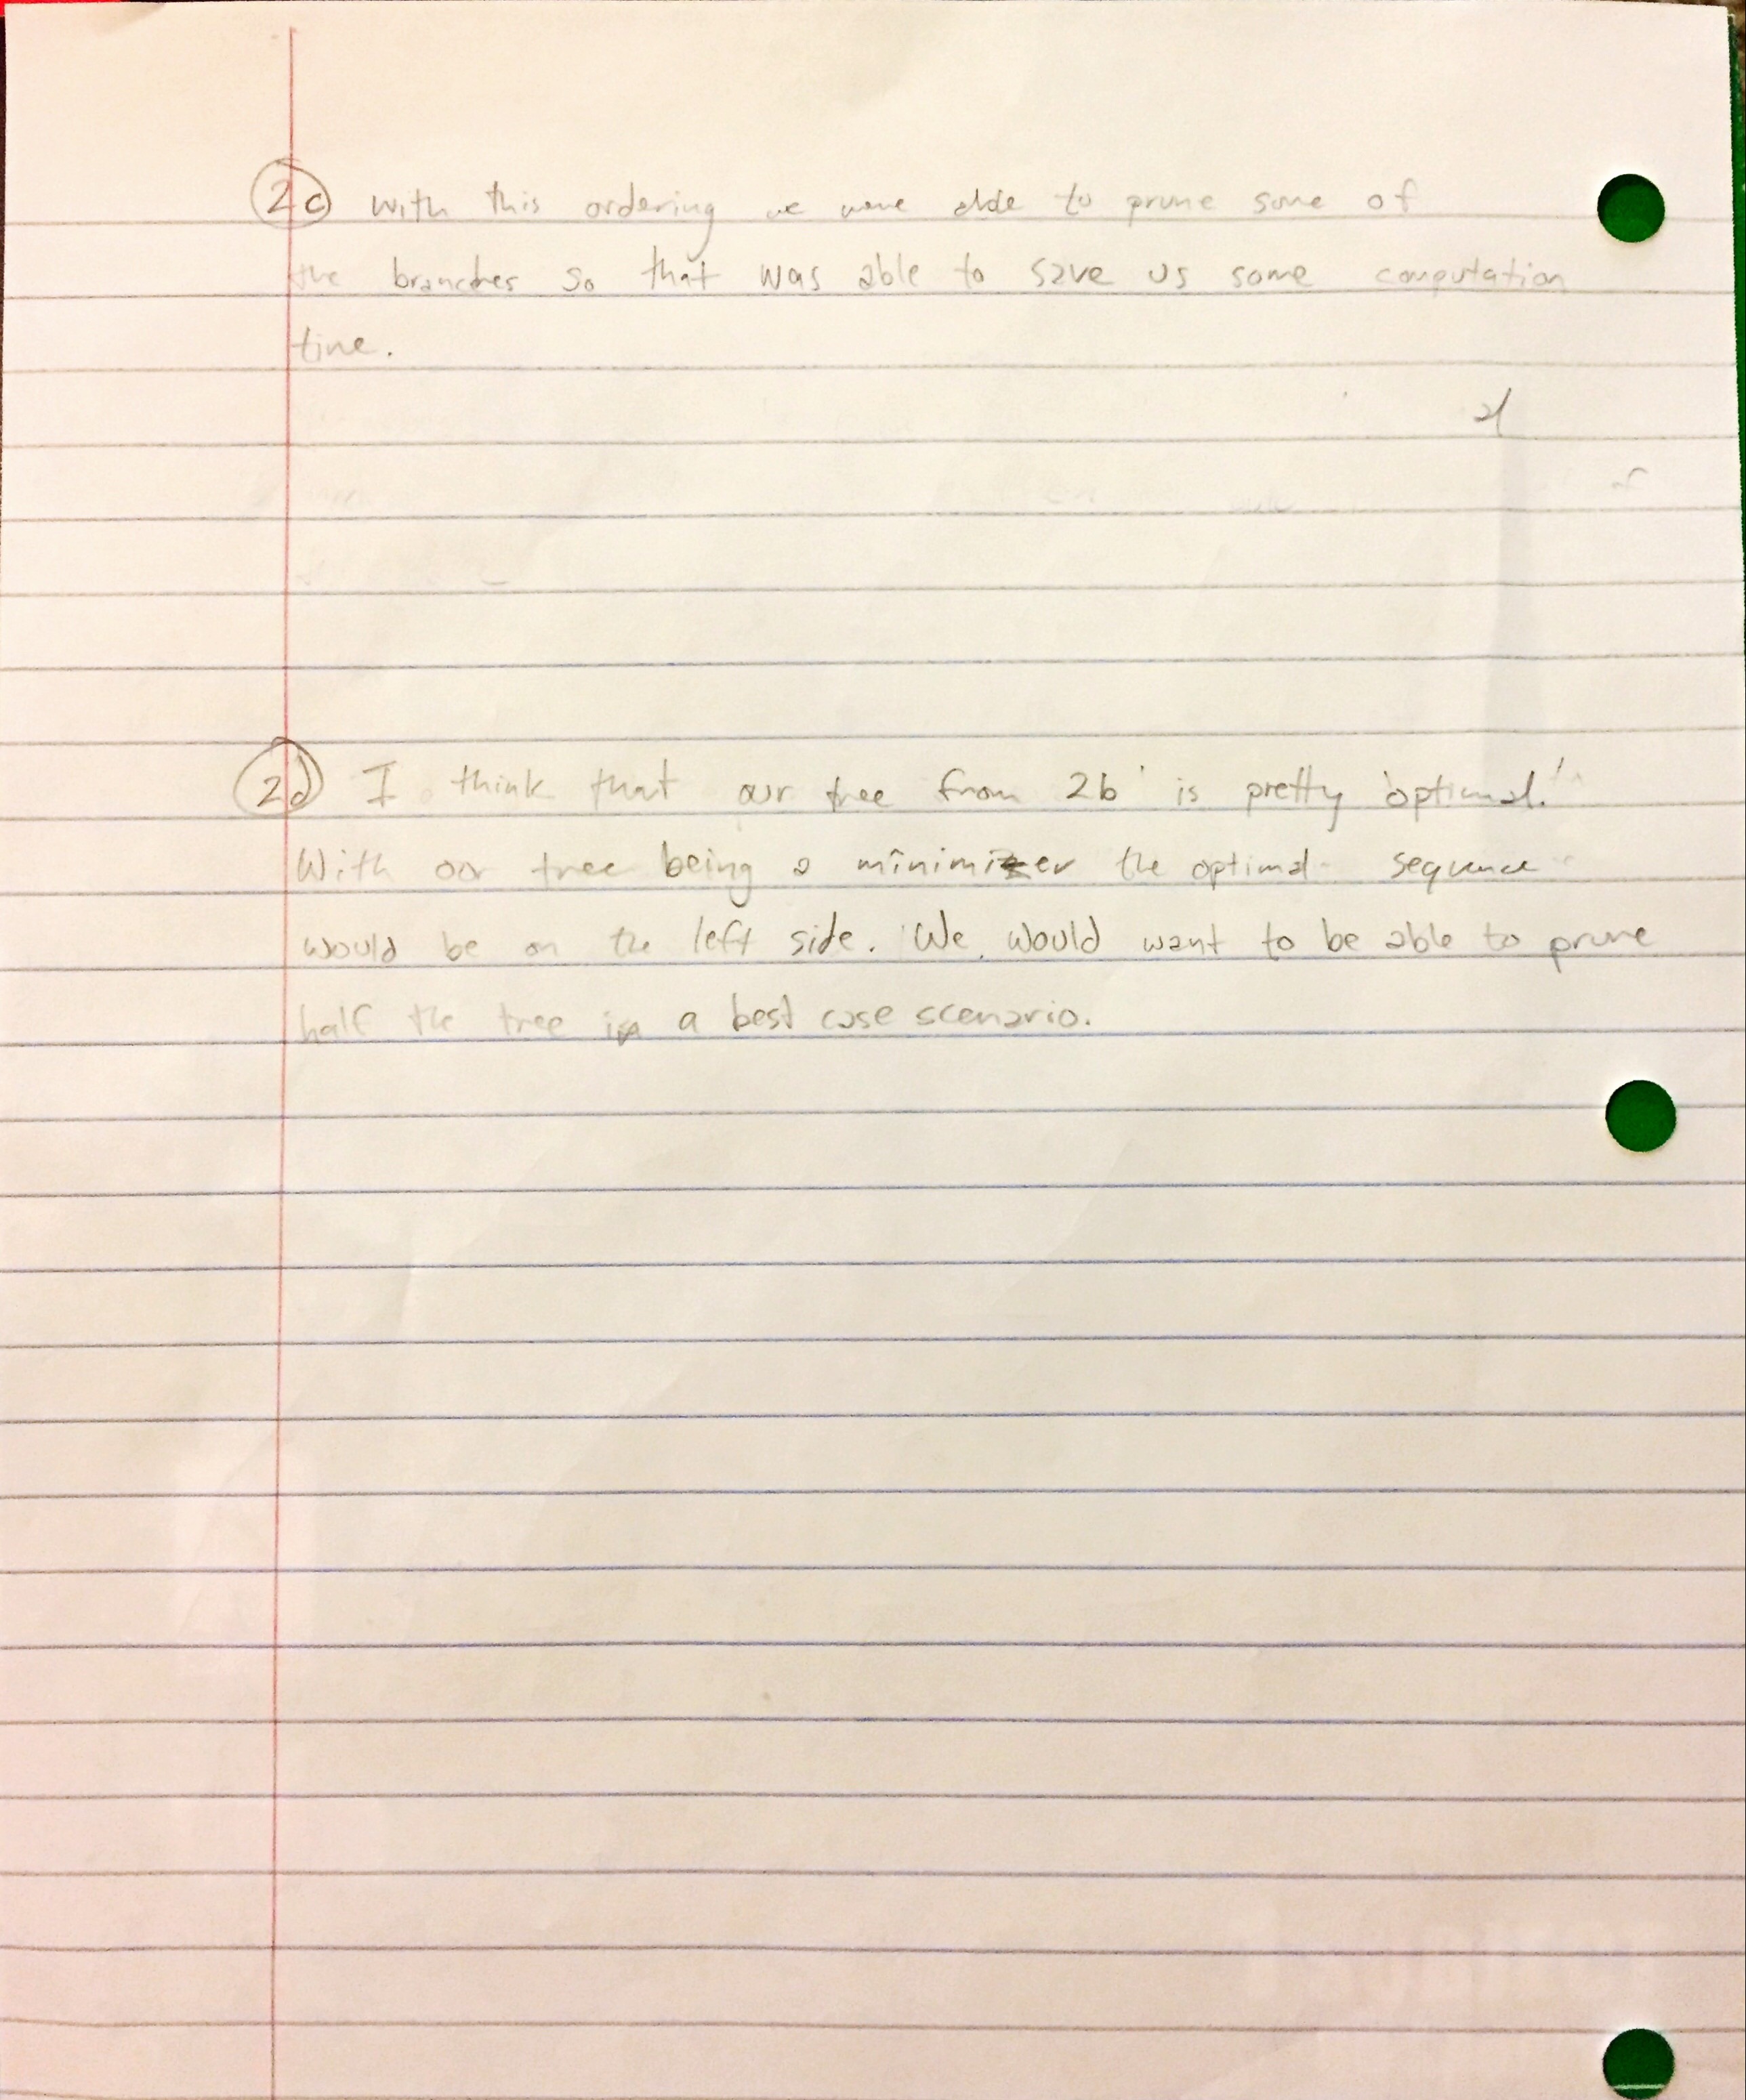 2c with this ordering we were able to prune some of
the branches so that was able to save us some computation
time.
2d I think that our tree from 2b is pretty optimal.
With our tree being a minimizer the optimal sequence
would be on the left side. We would want to be able to prune
half the tree in a best case scenario.